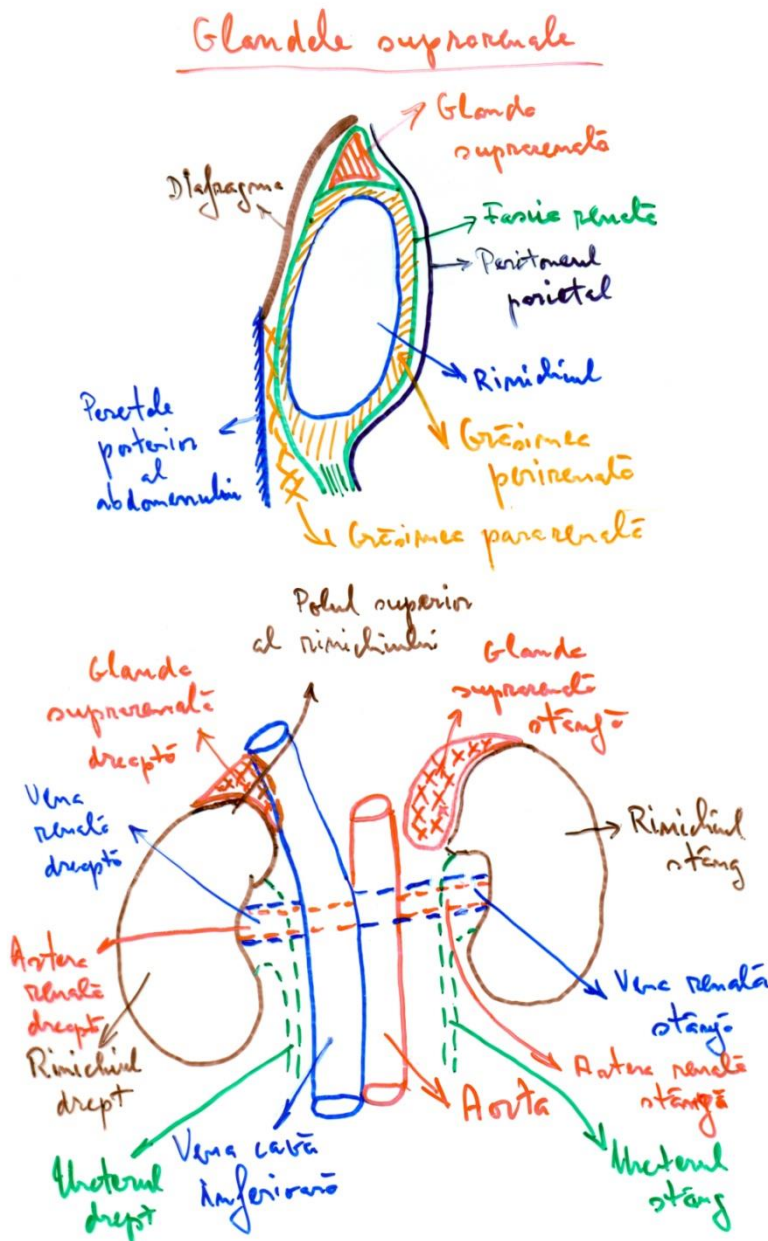 Glandele suprarenale
Glanda
suprarenală
Diafragma
Fascia renală
Peritoneul
parietal
Rinichiul
Peretele
posterior
al
abdomenului
Grăsimea
perirenală
Grăsimea pararenală
Polul superior
al rinichiului
Glanda
suprarenală
dreaptă
Glanda
suprarenală
stângă
Vena
renală
dreaptă
Rinichiul
stâng
Artera
renală
dreaptă
Vena renală
stângă
Rinichiul
drept
Artera renală
stângă
Aorta
Vena cavă
inferioară
Ureterul
drept
Ureterul
stâng